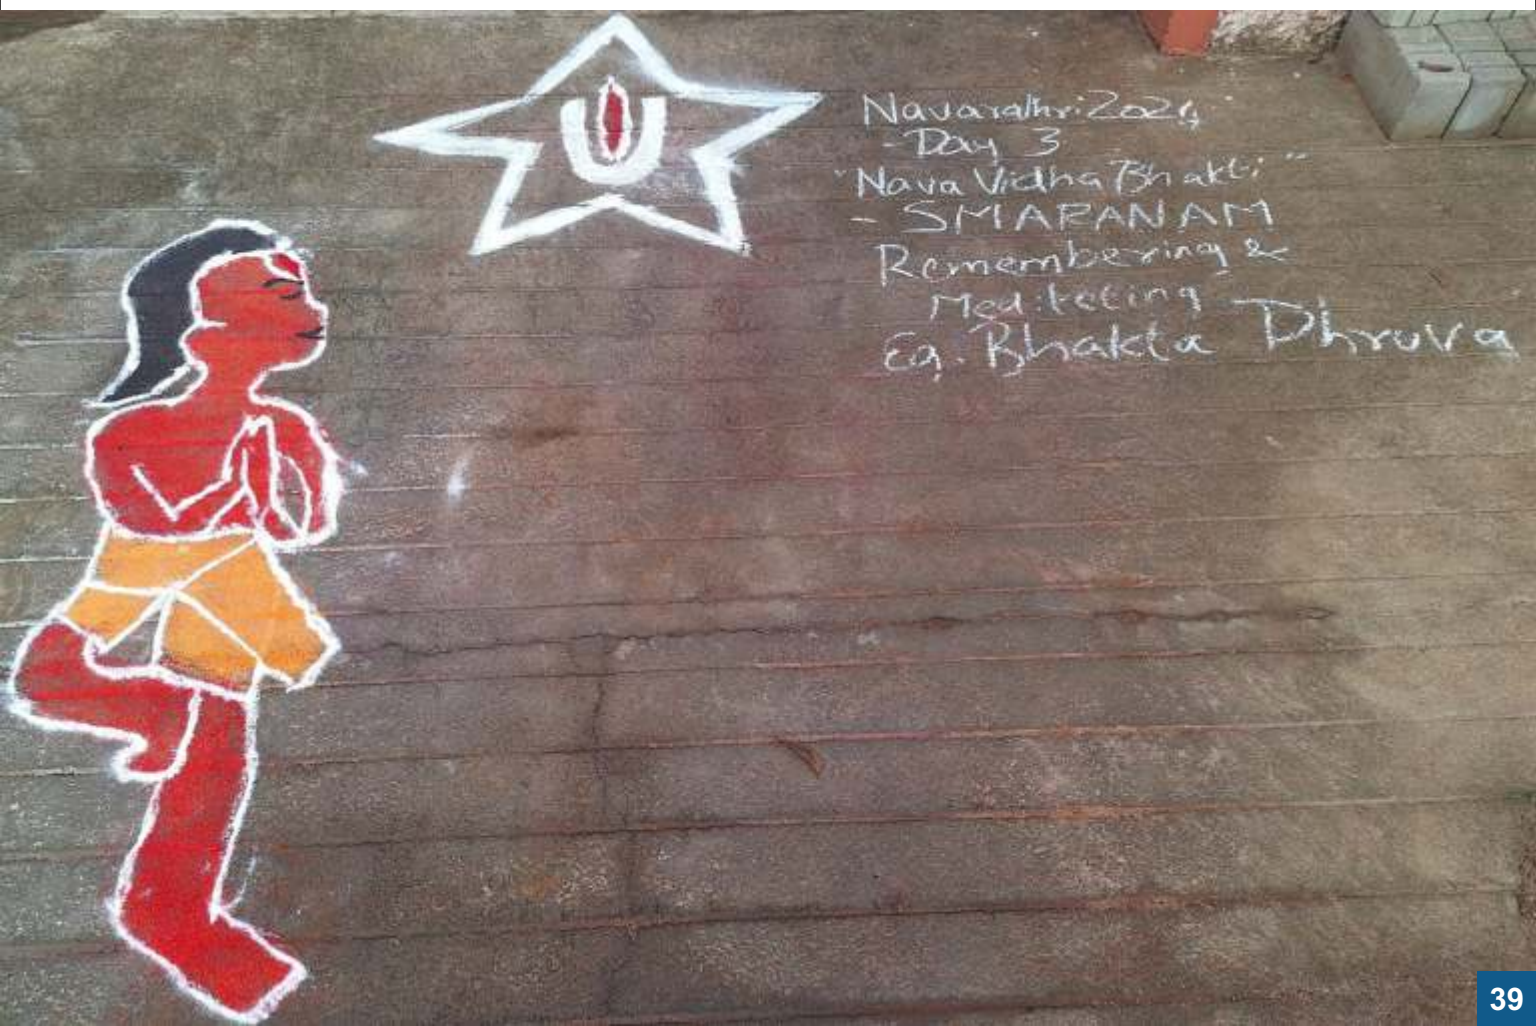 Navarathri 2024
- Day 3
"Nava Vidha Bhakti"
- SMARANAM
Remembering &
Meditating
Eg. Bhakta Dhruva
39